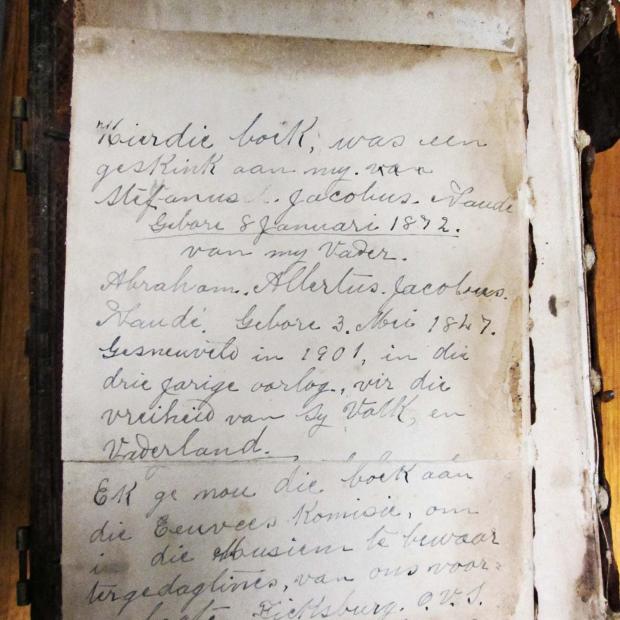 Hierdie boek, was een
geskink aan my. van
Stefanus. Jacobus. Naude
Gebore 8 Januari 1872.
van my Vader.
Abraham. Albertus. Jacobus.
Naudé. Gebore 3. Mei 1847.
Gesneuveld in 1901, in die
drie jarige oorlog, vir die
vreiheid van sy Volk, en
Vaderland.
Ek ge nou die boek aan
die Eeuvees Komisie, om
i die Musiem te bewaar
ter gedagtines, van ons voor=
Ficksburg. O.V.S.